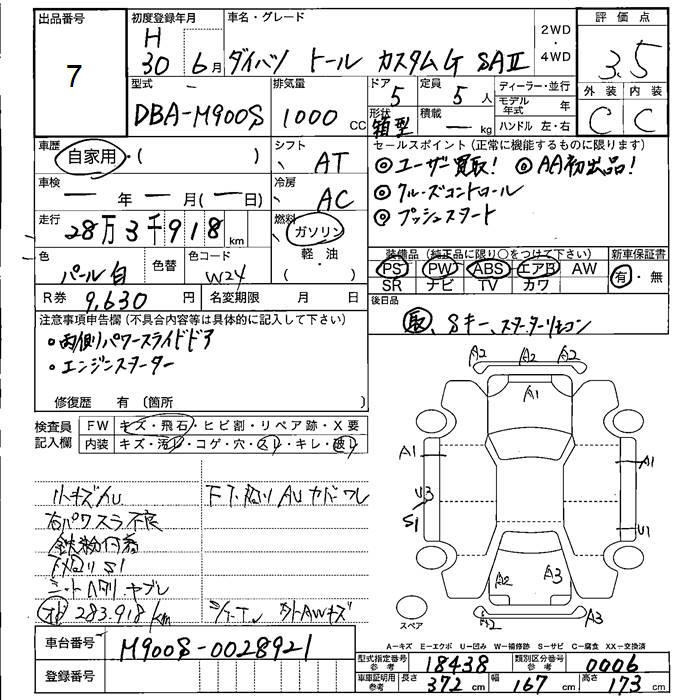 出品番号
7
初度登録年月
H
30 6月
車名・グレード
ダイハツ トール カスタムG SAII
2WD
・
4WD
評価点
3.5
外装 内装
C C
型式
DBA-M900S
排気量
1000 CC
ドア
5
定員
5 人
ディーラー・並行
モデル年式 年
ハンドル 左・右
形状
箱型
積載
ー kg
車歴
自家用・( )
シフト
AT
車検
ー 年 ー 月(ー日)
冷房
AC
走行
28万3千918 km
燃料
ガソリン
軽・油
( )
色
パール白
色替
色コード
W24
R券 9,630 円
名変期限 月 日
セールスポイント(正常に機能するものに限ります)
◎ユーザー買取! ◎AA初出品!
◎クルーズコントロール
◎プッシュスタート
装備品(純正品に限り○をつけて下さい)
PS PW ABS エアB AW
SR ナビ TV カワ
新車保証書
有・無
後日品
取、Sキー、スターターリモコン
注意事項申告欄(不具合内容等は具体的に記入して下さい)
・両側パワースライドドア
・エンジンスターター
修復歴 有(箇所 )
検査員記入欄
FW キズ・飛石・ヒビ割・リペア跡・X要
内装 キズ・汚レ・コゲ・穴・スレ・キレ・破レ
小キズAU
右パワスラ不良
鉄粉付着
下廻りS1
シートヘタリ、ヤブレ
283.918km
カバーワレ
AWキズ
A2 A2 A2
A1
A1 A1
U3
S1 U1
A2 A3
A2 A3
スペア
A-キズ E-エクボ U-凹み W-補修跡 S-サビ C-腐食 XX-交換済
車台番号 M900S-0028921
登録番号
型式指定番号 参考 18438
類別区分番号 参考 0006
車庫証明用 参考 長さ 372 cm 幅 167 cm 高さ 173 cm